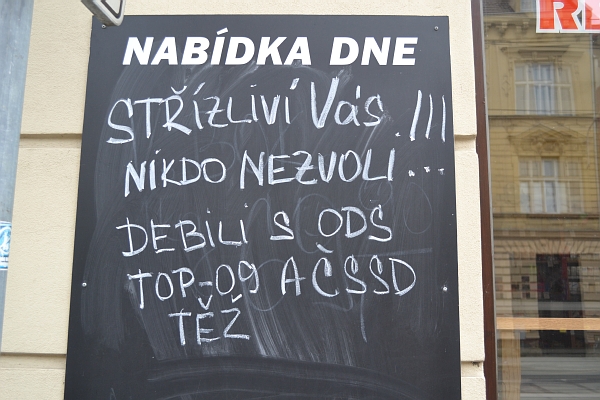 NABÍDKA DNE
STŘÍZLIVÍ VáS .!!!
NIKDO NEZVOLI ...
DEBILI S ODS
TOP-09 A ČSSD
TĚŽ